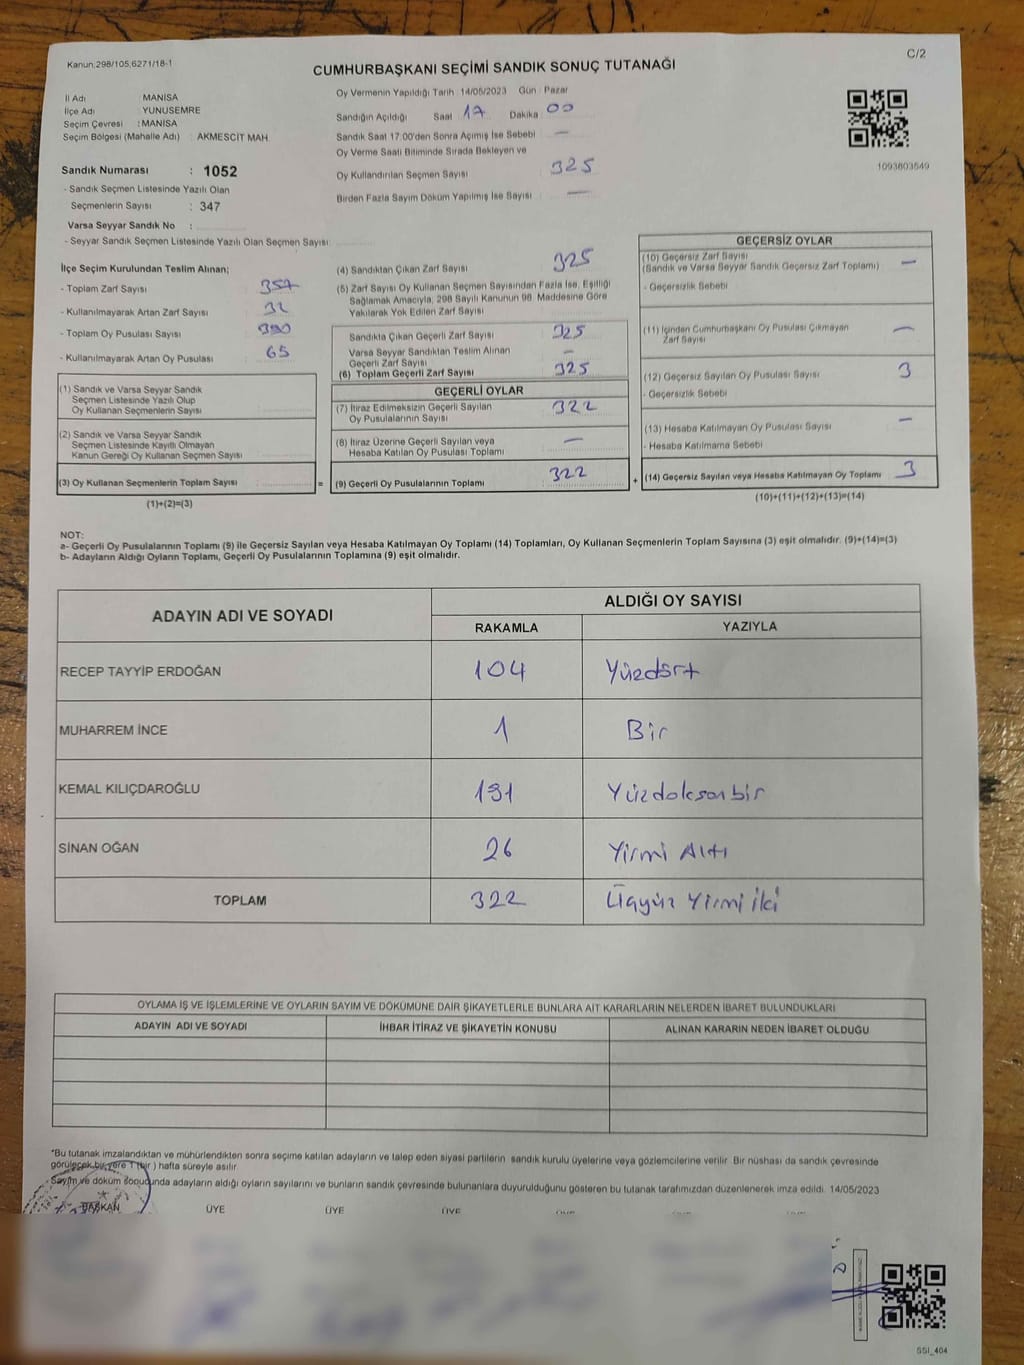 Kanun:298/105,6271/18-1
C/2
CUMHURBAŞKANI SEÇİMİ SANDIK SONUÇ TUTANAĞI
İl Adı MANİSA
İlçe Adı YUNUSEMRE
Seçim Çevresi : MANİSA
Seçim Bölgesi (Mahalle Adı) : AKMESCİT MAH.
Oy Vermenin Yapıldığı Tarih : 14/05/2023 Gün : Pazar
Sandığın Açıldığı Saat 17 Dakika 00
Sandık Saat 17:00'den Sonra Açılmış İse Sebebi —
Oy Verme Saati Bitiminde Sırada Bekleyen ve
Oy Kullandırılan Seçmen Sayısı : 325
Birden Fazla Sayım Döküm Yapılmış İse Sayısı : —
1093803549
Sandık Numarası : 1052
- Sandık Seçmen Listesinde Yazılı Olan
Seçmenlerin Sayısı : 347
Varsa Seyyar Sandık No :
- Seyyar Sandık Seçmen Listesinde Yazılı Olan Seçmen Sayısı:
İlçe Seçim Kurulundan Teslim Alınan;
- Toplam Zarf Sayısı : 357
- Kullanılmayarak Artan Zarf Sayısı : 32
- Toplam Oy Pusulası Sayısı : 390
- Kullanılmayarak Artan Oy Pusulası : 65
(1) Sandık ve Varsa Seyyar Sandık
Seçmen Listesinde Yazılı Olup
Oy Kullanan Seçmenlerin Sayısı
(2) Sandık ve Varsa Seyyar Sandık
Seçmen Listesinde Kayıtlı Olmayan
Kanun Gereği Oy Kullanan Seçmen Sayısı
(3) Oy Kullanan Seçmenlerin Toplam Sayısı
(1)+(2)=(3)
=
(4) Sandıktan Çıkan Zarf Sayısı : 325
(5) Zarf Sayısı Oy Kullanan Seçmen Sayısından Fazla İse, Eşitliği
Sağlamak Amacıyla, 298 Sayılı Kanunun 98. Maddesine Göre
Yakılarak Yok Edilen Zarf Sayısı
Sandıkta Çıkan Geçerli Zarf Sayısı : 325
Varsa Seyyar Sandıktan Teslim Alınan
Geçerli Zarf Sayısı —
(6) Toplam Geçerli Zarf Sayısı : 325
GEÇERLİ OYLAR
(7) İtiraz Edilmeksizin Geçerli Sayılan
Oy Pusulalarının Sayısı : 322
(8) İtiraz Üzerine Geçerli Sayılan veya
Hesaba Katılan Oy Pusulası Toplamı —
(9) Geçerli Oy Pusulalarının Toplamı 322
+
GEÇERSİZ OYLAR
(10) Geçersiz Zarf Sayısı
(Sandık ve Varsa Seyyar Sandık Geçersiz Zarf Toplamı) —
- Geçersizlik Sebebi
(11) İçinden Cumhurbaşkanı Oy Pusulası Çıkmayan
Zarf Sayısı —
(12) Geçersiz Sayılan Oy Pusulası Sayısı 3
- Geçersizlik Sebebi
(13) Hesaba Katılmayan Oy Pusulası Sayısı —
- Hesaba Katılmama Sebebi
(14) Geçersiz Sayılan veya Hesaba Katılmayan Oy Toplamı 3
(10)+(11)+(12)+(13)=(14)
NOT:
a- Geçerli Oy Pusulalarının Toplamı (9) ile Geçersiz Sayılan veya Hesaba Katılmayan Oy Toplamı (14) Toplamları, Oy Kullanan Seçmenlerin Toplam Sayısına (3) eşit olmalıdır. (9)+(14)=(3)
b- Adayların Aldığı Oyların Toplamı, Geçerli Oy Pusulalarının Toplamına (9) eşit olmalıdır.
ADAYIN ADI VE SOYADI ALDIĞI OY SAYISI
RAKAMLA YAZIYLA
RECEP TAYYİP ERDOĞAN 104 Yüzdört
MUHARREM İNCE 1 Bir
KEMAL KILIÇDAROĞLU 191 Yüzdoksanbir
SİNAN OĞAN 26 Yirmi Altı
TOPLAM 322 Üçyüz Yirmi iki
OYLAMA İŞ VE İŞLEMLERİNE VE OYLARIN SAYIM VE DÖKÜMÜNE DAİR ŞİKAYETLERLE BUNLARA AİT KARARLARIN NELERDEN İBARET BULUNDUKLARI
ADAYIN ADI VE SOYADI İHBAR İTİRAZ VE ŞİKAYETİN KONUSU ALINAN KARARIN NEDEN İBARET OLDUĞU
*Bu tutanak imzalandıktan ve mühürlendikten sonra seçime katılan adayların ve talep eden siyasi partilerin sandık kurulu üyelerine veya gözlemcilerine verilir. Bir nüshası da sandık çevresinde
görülecek bir yere 1 (bir) hafta süreyle asılır.
Sayım ve döküm sonucunda adayların aldığı oyların sayılarını ve bunların sandık çevresinde bulunanlara duyurulduğunu gösteren bu tutanak tarafımızdan düzenlenerek imza edildi. 14/05/2023
BAŞKAN ÜYE ÜYE ÜYE
SSI_404